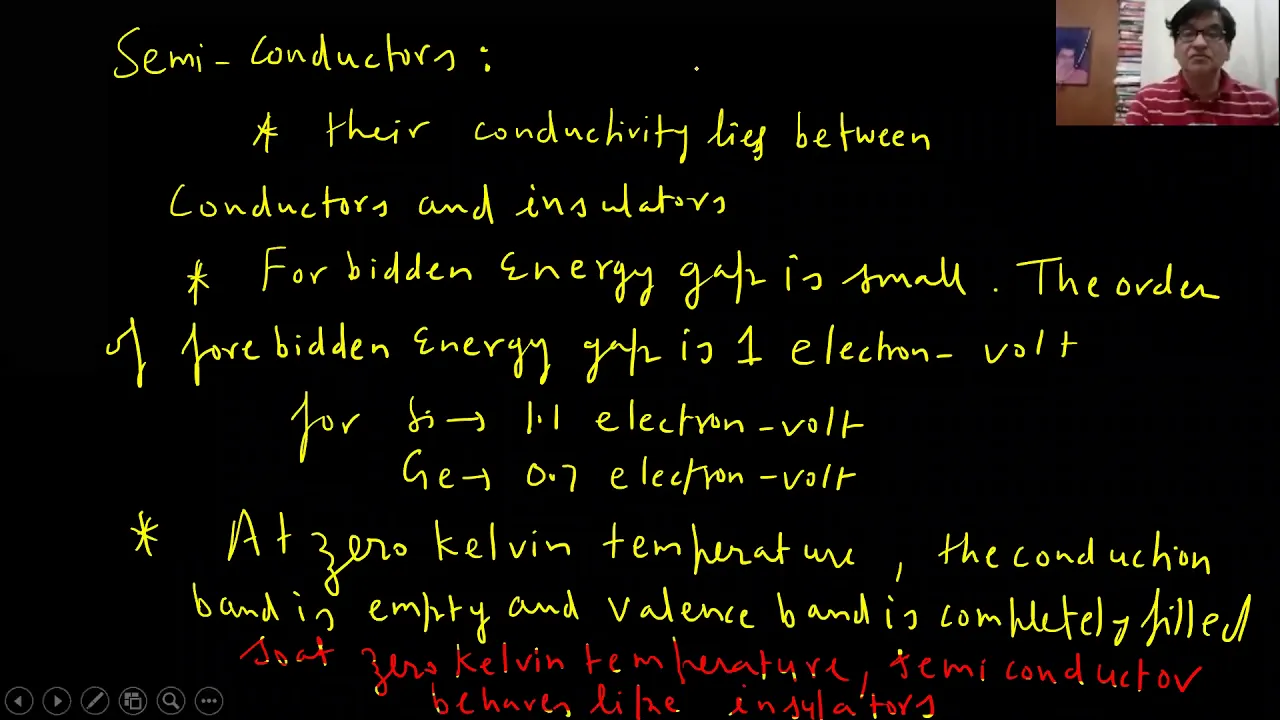 Semi-conductors :
* their conductivity lies between
conductors and insulators
* Forbidden Energy gap is small. The order
of forebidden Energy gap is 1 electron-volt
for Si → 1.1 electron-volt
Ge → 0.7 electron-volt
* At zero kelvin temperature, the conduction
band is empty and valence band is completely filled
so at zero kelvin temperature, semiconductor
behaves like insulators